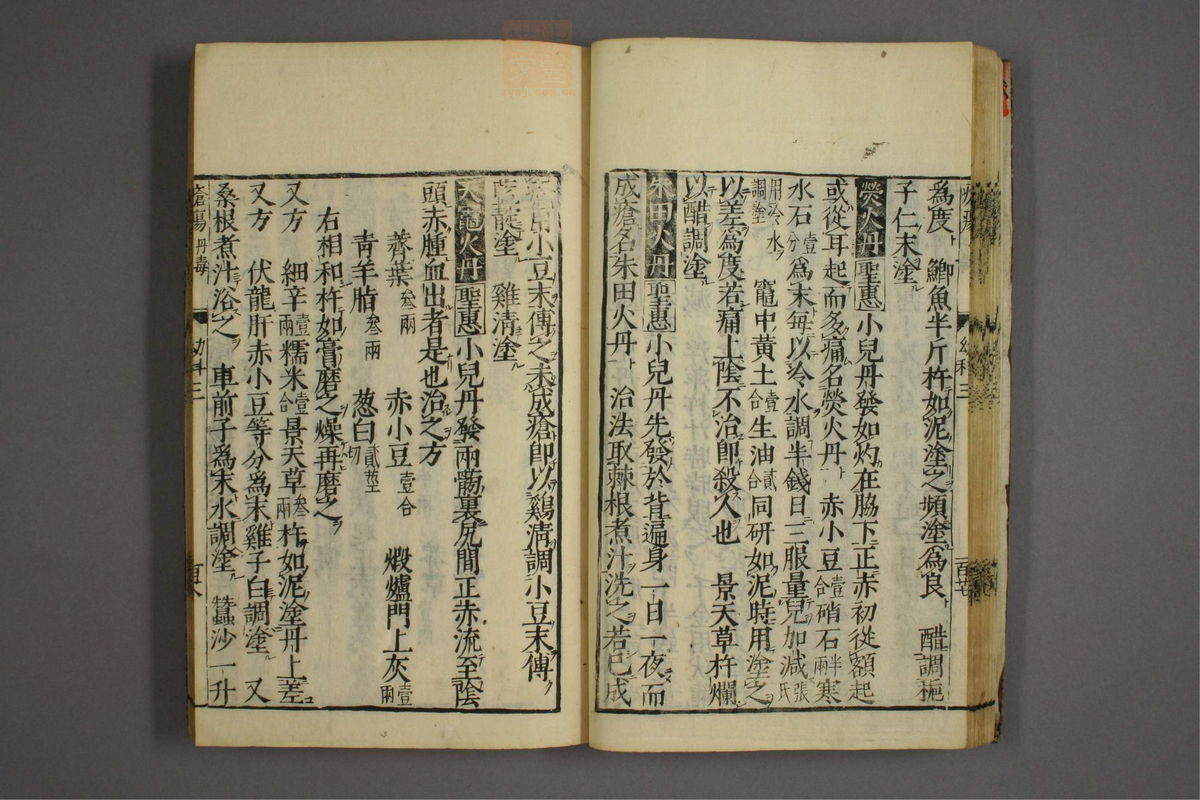 爲度 鯽魚半斤杵如泥塗之頻塗爲良 醋調梔
子仁末塗
熒火丹 聖惠 小兒丹發如灼在脇下正赤初從額起
或從耳起而多痛名熒火丹 赤小豆壹合硝石半兩寒
水石壹分爲末每以冷水調半錢日三服量兒加減張氏
用冷水調塗 竈中黄土壹合生油貳合同研如泥時用塗之
以差爲度若痛上䧟不治即殺人也 景天草杵爛
以醋調塗
朱田火丹 聖惠 小兒丹先發於背遍身一日一夜而
成瘡名朱田火丹 治法取棘根煮汁洗之若已成
瘡用小豆末傅之未成瘡即以鷄淸調小豆末傅
藍靛塗 雞清塗
天竈火丹 聖惠 小兒丹發兩䐚裏尻間正赤流至䧟
頭赤腫血出者是也治之方
薺葉叁兩 赤小豆壹合 煅爐門上灰壹兩
靑羊脂叁兩 葱白貳莖切
右相和杵如膏磨之燥再磨之
又方 細辛壹兩糯米壹合景天草叁兩杵如泥塗丹上差
又方 伏龍肝赤小豆等分爲末雞子白調塗 又
桑根煮汁浴之 車前子爲末水調塗 蠶沙一升
瘡瘍 丹毒 幼科三